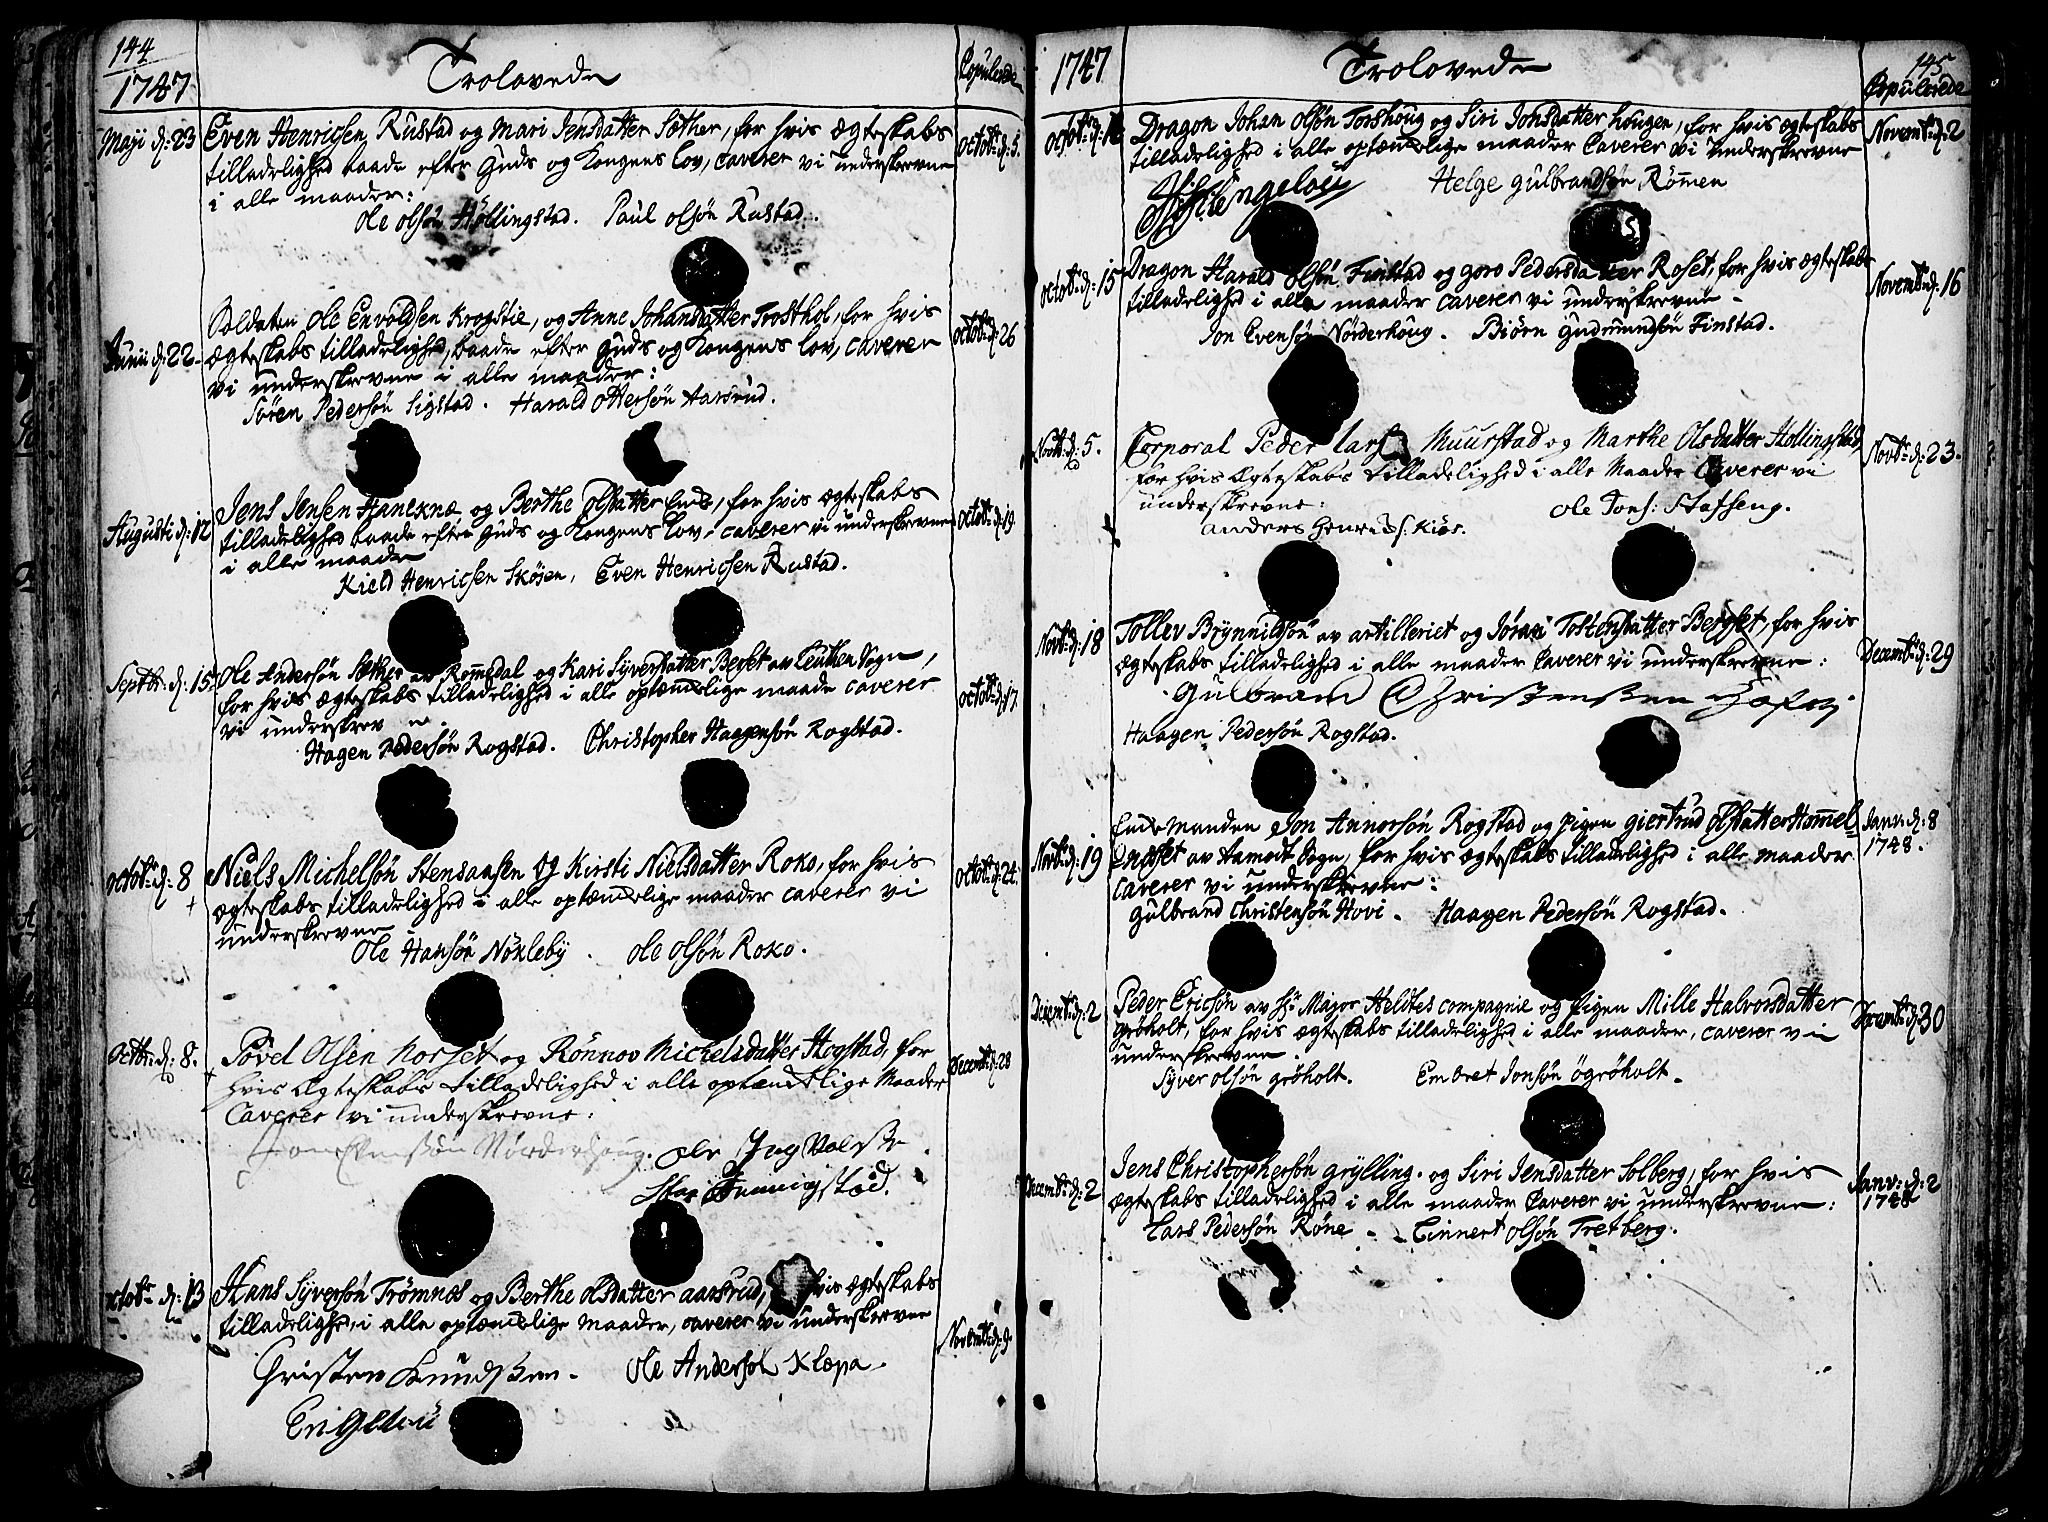 144
1747
Trolovede
Copulerede
Maji d: 23
Even Henricsen Rustad og Mari Jensdatter Sæther, for hvis ægteskabs
tilladelighed baade efter Guds og Kongens lov, caverer vi underskrevne
i alle maader:
octobr: d: 5.
Ole Olsøn Høllingstad. Paul Olsøn Rustad.
Junii d: 22.
Soldaten Ole Envoldsen Krogstie, og Anne Johansdatter Trosthol, for hvis
ægteskabs tilladelighed, baade efter Guds og Kongens lov, caverer
vi underskrevne i alle maader:
octob: d: 26
Sören Pedersøn Sigstad. Harald Ottersøn Aarsrud.
Augusti d: 12
Jens Jensen Haneknæ og Berthe Olsdatter Ende, for hvis ægteskabs
tilladelighed baade efter Guds og Kongens Lov, caverer vi underskrevne
i alle maader
octobr: d: 19.
Kield Henricsen Skøien, Even Henricsen Rustad.
Septbr: d: 15.
Ole Andersøn Sæther av Romsdal og Kari Syversdatter Berset av Leuthen Sogn,
for hvis ægteskabs tilladelighed i alle optænckelige maade caverer
vi underskrevne
octobr: d: 17.
Hagen Pedersøn Rogstad. Christopher Haagensøn Rogstad.
octobr: d: 8
Niels Michelsøn Stensaasen og Kirsti Nielsdatter Roko, for hvis
ægteskabs tilladelighed i alle optænckelige maader caverer vi
underskrevne
octobr: d: 24.
Ole Hansøn Nöxleby. Ole Olsøn Roko.
Octbr: d: 8.
Povel Olsen Norset og Rönnov Michelsdatter Hogstad, for
hvis Ægteskabs tilladelighed i alle optænckelige Maader
Caverer vi underskrevne:
Decembr: d: 28
Jon Evensøn Nörderhoug. Ole Ingvals
octobr d: 13
Hans Syversøn Trömnes og Berthe Olsdatter Aasrud, for hvis ægteskabs
tilladelighed, i alle optænckelige maader, caverer vi underskrevne
Novembr: d: 9.
Christen Knudssen. Ole Andersøn Klæpa.
Engelau
1747
Trolovede
145
Copulerede
octobr: d:
Dragon Johan Olsøn Torshoug og Siri Jonsdatter Hougen, for hvis ægteskabs
tilladelighed i alle optænckelige maader Caverer vi underskrevne
Novembr: d: 2
Helge Gulbrandsøn Römen
octobr: d: 15
Dragon Harald Olsøn Finstad og Goro Pedersdatter Roset, for hvis ægteskabs
tilladelighed i alle maader caverer vi underskrevne
Novembr: d: 16
Jon Evensøn Nörderhoug. Biörn Gudmundsøn Finstad.
Novbr: d: 5.
Corporal Peder Larsøn Muurstad og Marthe Olsdatter Hollingstad,
for hvis Ægteskabs tilladelighed i alle Maader Caverer vi
underskrevne:
Novbr: d: 23.
Anders Henrichs. Kiös.
Ole Jons: Stafseng.
Novbr: d: 18
Tollev Brynnildsøn av artilleriet og Jøran Tostensdatter Berset, for hvis
ægteskabs tilladelighed i alle maader Caverer vi underskrevne:
Decembr: d: 29
Gulbrand Christenssen Hofvi.
Haagen Pedersøn Rogstad.
Novbr: d: 19
Enke Manden Jon Annorsøn Rogstad og Pigen Giertrud Olsdatter Hommel-
onæset av Aamodt Sogn, for hvis ægteskabs tilladelighed i alle maader
caverer vi underskrevne:
Janv: d: 8
1748.
Gulbrand Christensøn Hovi. Haagen Pedersøn Rogstad.
Decembr: d: 2
Peder Ericsøn av Hr Major Heldtes compagnie og Pigen Mille Halvorsdatter
Gröholt, for hvis ægteskabs tilladelighed i alle maader, caverer vi
underskrevne
Decembr: d: 30
Syver Olsøn Gröholt. Embret Jonsøn Ögröholt.
Decembr: d: 2
Jens Christophersøn Grylling. og Siri Jensdatter Solberg, for hvis
ægteskabs tilladelighed i alle maader Caverer vi underskrevne:
Janv: d: 2
1748
Lars Pedersøn Röne. Einnert Olsøn Tretberg.